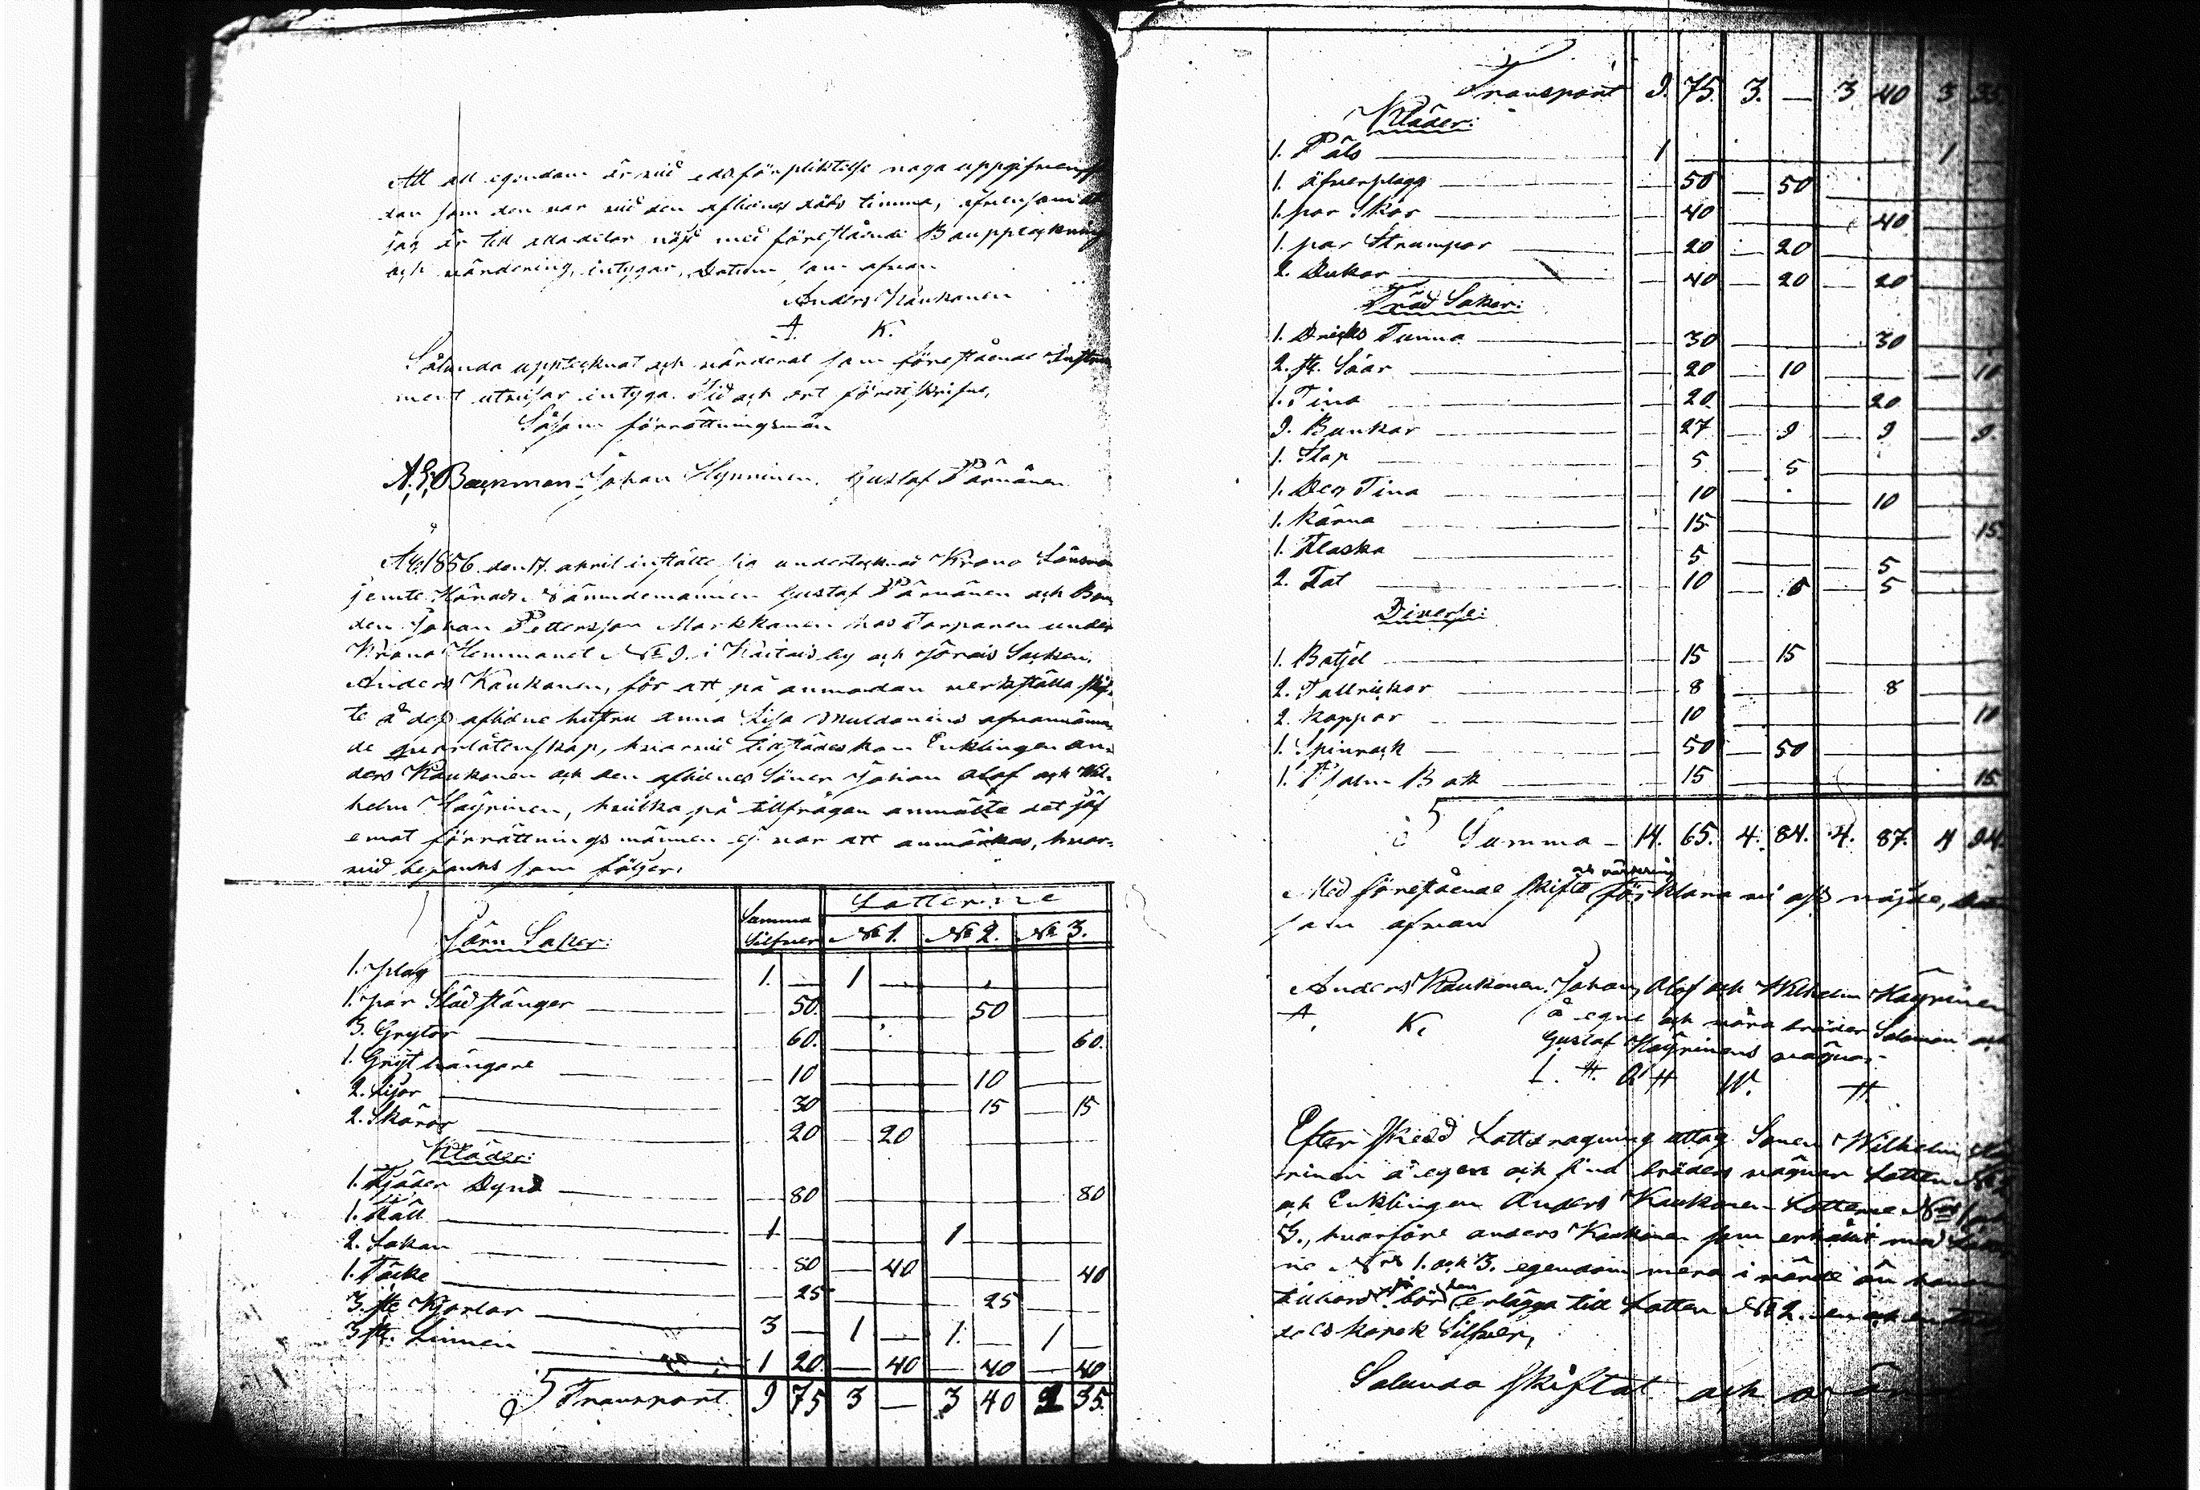 Att all egendom är vid edsförpliktelse noga uppgifven
dan som den var vid den aflidnes döds timma, äfvensom
jag är till alla delar nöjd med föreståendе Bouppteckning
och värdering, intygar, Datum som ofvan
Anders Kaukonen
A. K.
Sålunda upptecknat och värderat som föreståendе Instru
ment utvisar intyga. Tid och ort förutskrifne,
Såsom förrättningsmän
A. E. Backman Johan Hynninen, Gustaf Pärnänen
År 1856 den 17. april instälte sig undertecknad Krono Länsman
jemte Härads Nämndemannen Gustaf Pärnänen och Bon
den Johan Pettersson Markkanen hos Torparen under
Krono Hemmanet No 9. i Kaitais by och Jorois Socken,
Anders Kaukonen, för att på anmodan verkställa skif
te å dess aflidne hustru Anna Lisa Muldanens ofvannämn
de qvarlåtenskap, hvarvid tillstädeskom Enklingen An
ders Kaukonen och den aflidnes Söner Johan Olof och Wil
helm Häyrinen, hvilka på tillfrågan anmälte det jäf
emot förrättningsmännen ej var att anmärkas, hvar-
vid befanns som följer:
Summa Silfver Lotterne
No 1. No 2. No 3.
Järn Saker:
1. plog 1. — 1 —
1. par Släd stänger 50. 50
3. Grytor 60. 60.
1. Gryt hängare 10 10
2. Lijor 30 15 15
2. Skäror 20 20
Kläder:
1. Fjäder Dyna 80 80
1. 1 1
2. Lakan 80 40 40
1. Täcke 25 25
3. st. Kjortlar 3 — 1 — 1. — 1 —
3 st. Linnen 1 20. 40 40 40
Transport 9 75 3 — 3 40 35.
Transport 9. 75. 3. — 3 40 3 35.
Kläder:
1. Päls 1 1
1. äfverplagg 50 50
1. par Skor 40 40
1. par Strumpor 20 20
2. Dukar 40 20 20
Träd Saker:
1. Dricks Tunna 30 30
2. st. Såar 20 10 10
1. Tina 20 20
9. Bunkar 27 9 9 9.
1. Stop 5 5
1. Deg Tina 10 10
1. Kärna 15 15
1. Flaska 5 5
2. Fat 10 5 5
Diverse:
1. Botjel 15 15
2. Tallrickar 8 8
2. Koppar 10 10
1. Spinrock 50 50
1. Psalm Bok 15 15
Summa 14. 65. 4. 84. 4. 87. 4 94.
och värdering
Med föreståendе skifte förklara vi oss nöjde,
som ofvan
Anders Kaukonen. Johan, Olof och Wilhelm Häyrinen
A. K. å egne och våra bröder Salomon och
Gustaf Häyrinens vägnar
I. H. O H W. H
Efter skedd Lottdragning uttog Sonen Wilhelm Häy
rinen å egen och sina bröders vägnar Lotten No 2
och Enklingen Anders Kaukonen Lotterne No 1 och
3., hvarföre Anders Kaukonen som erhållit med Lotter
ne No 1. och 3. egendom mera i värde än honom
tillhört, bör han erlägga till Lotten No 2. en och en
dels kopek Silfver,
Sålunda skiftat och